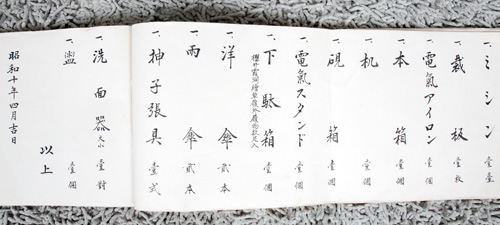 一、ミシン 壹臺
一、裁板 壹枚
一、電氣アイロン 壹個
一、本箱 壹個
一、机 壹個
一、硯箱 壹個
一、電氣スタンド 壹個
一、下駄箱 壹個
一、洋傘 貳本
一、雨傘 貳本
一、抻子張具 壹式
一、洗面器 大小 壹對
一、盥 壹個
以上
昭和十年四月吉日